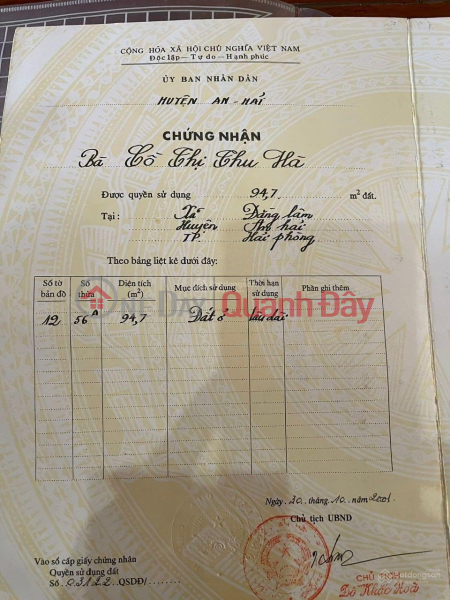 CỘNG HÒA XÃ HỘI CHỦ NGHĨA VIỆT NAM
Độc lập — Tự do — Hạnh phúc
ỦY BAN NHÂN DÂN
HUYỆN AN-HẢI
CHỨNG NHẬN
Bà Cồ Thị Thu Hà
Được quyền sử dụng 94,7 m² đất.
Tại: Xã Đằng lâm
Huyện An hải
TP. Hải phòng
Theo bảng liệt kê dưới đây:
Số tờ bản đồ Số thửa Diện tích (m²) Mục đích sử dụng Thời hạn sử dụng Phần ghi thêm
12 56A 94,7 Đất ở lâu dài
Quanh Đây
Ngày 20 tháng 10 năm 2001
Chủ tịch UBND
Vào sổ cấp giấy chứng nhận
Quyền sử dụng đất
Số 03122 QSDĐ/
CHỦ TỊCH
Đỗ Khắc Hoà